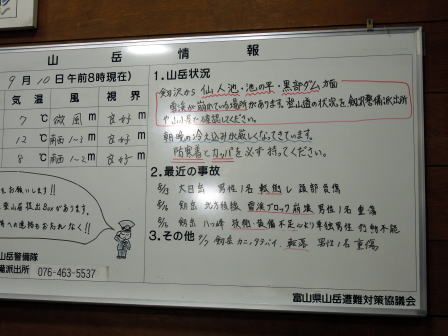 山岳情報
9月10日午前8時現在)
気温 風 視界
7 ℃ 微風 m 良好 m
12 ℃ 南西1~3 m 良好 m
8 ℃ 南西1~2 m 良好 m
をお願いします!!
登山届提出Boxがあります。
もおたれなく!!
山岳警備隊
備派出所 076-463-5537
1.山岳状況
剱沢から仙人池・池の平・黒部ダム方面
雪渓が崩れている場所があります。登山道の状況を剱沢警備派出所
や山小屋で確認してください。
朝晩の冷え込みが厳しくなってきています。
防寒着とカッパを必ず持ってください。
2.最近の事故
大日岳 男性1名 転倒し 頭部負傷
剱岳 北方稜線 雪渓ブロック崩壊 男性1名 重傷
剱岳 八ツ峰 技術・装備不足により単独男性 行動不能
3.その他
剱岳 カニノタテバイ 転落 男性1名 重傷
富山県山岳遭難対策協議会